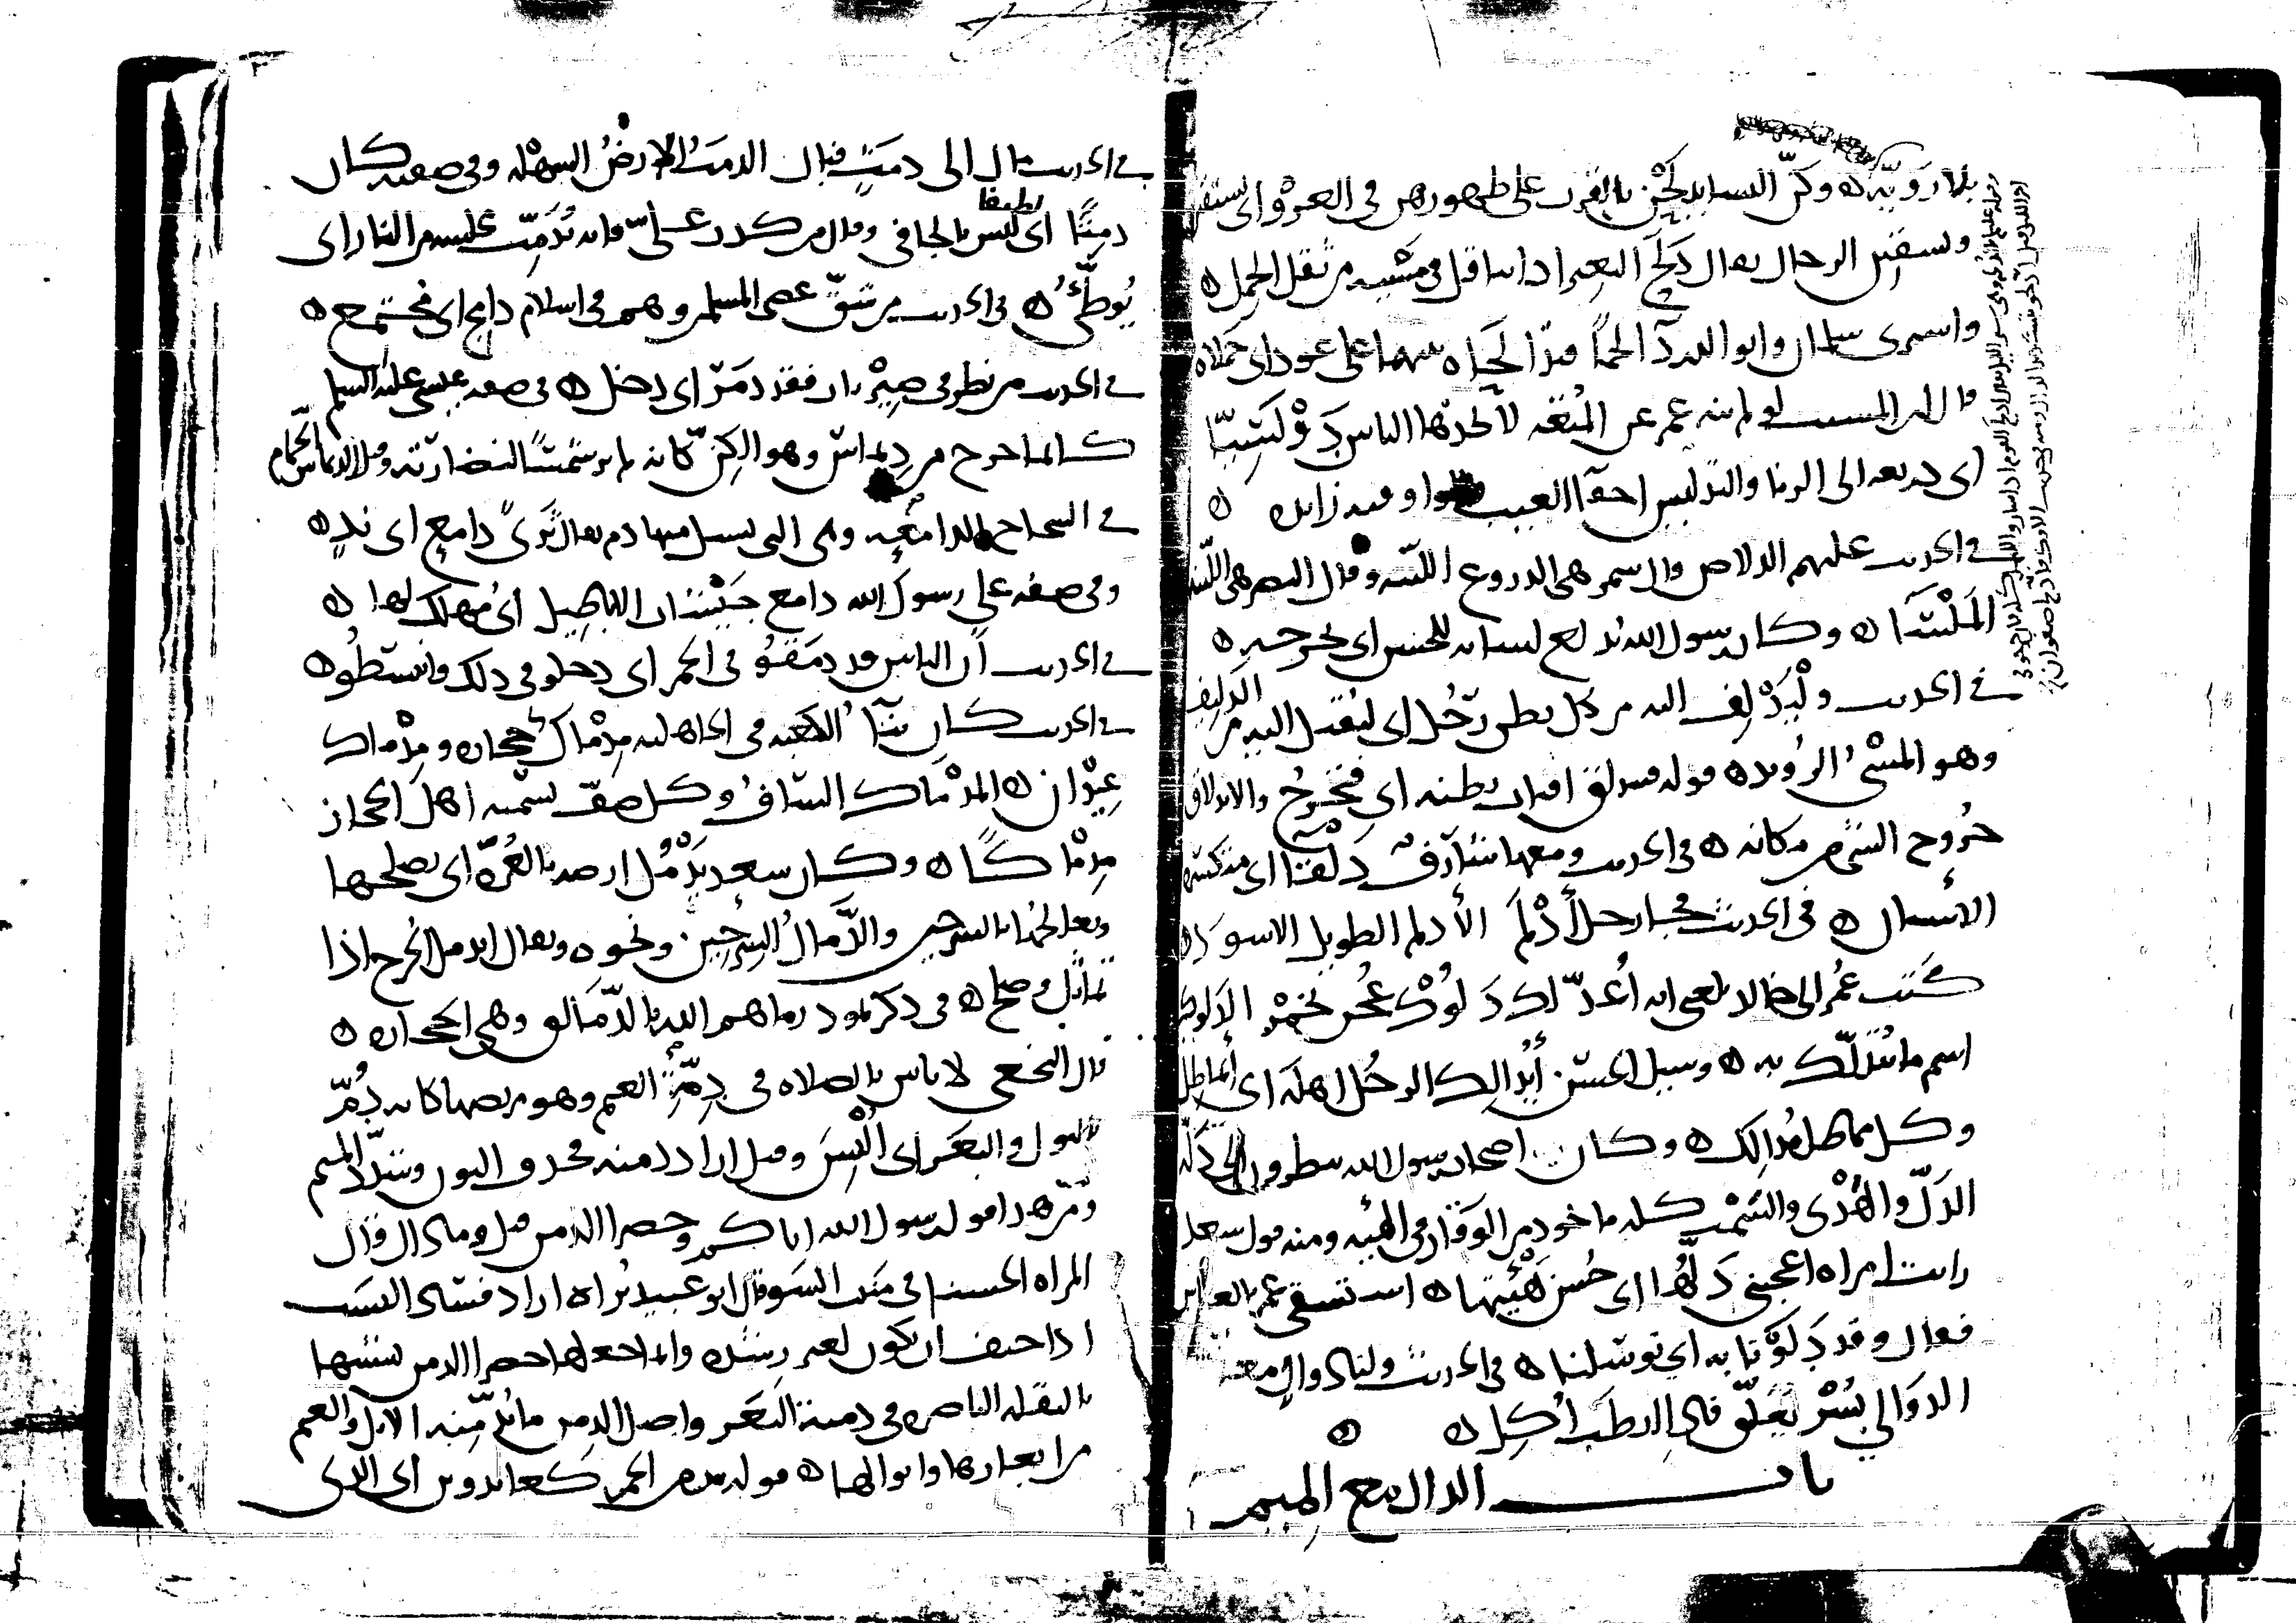 بلا رَوِيّة ه وكنّ النساء يدلحن بالقرب على ظهورهن في الغزو اي يستقين
ويسقين الرجال يقال دَلَحَ البعير اذا تثاقل في مشيه من ثقل الحمل ه
واشترى سلمان وابو الدرداء لحماً فتدالحاه بينهما على عود اي حملاه
قال ابن المسيب لو لم ينه عمر عن المتعة لاتخذها الناس دَوْلَسِيّا
اي ذريعة الى الزنا والتدليس اخفاء العيب والواو فيه زائدة ه
في الحديث عليهم الدلاص قال شمر هي الدروع اللينة وقال النضر هي اللينة
المَلْسَاء ه وكان رسول الله يدلع لسانه للحسن اي يخرجه ه
في الحديث وليَدْلِف اليه من كل بطن رَجُل اي ليقبل اليه من الدليف
وهو المشي الرويد ه قوله فتندلق اقتاب بطنه اي فتخرج والاندلاق
خروج الشيء من مكانه ه في الحديث ومعها شارف دلقاء اي منكسرة
الاسنان ه في الحديث فجاء رجل أَدْلَم الأدلم الطويل الاسود ه
كتب عمر الى خالد بلغني انه أُعدّ لك دَلُوك عُجن بخمر الدلوك
اسم ما يُتدلّك به ه وسئل الحسن أيُدالك الرجُل اهله اي أيماطل
وكل مماطل مُدالك ه وكان اصحاب رسول الله ينظرون الى دَلّه
الدَلّ والهَدْي والسَمْت كله ماخوذ من الوقار في الهيئة ومنه قول سعد
رايت امراة اعجبني دَلُّها اي حُسن هَيْئتها ه استسقى عمر بالعباس
فقال وقد دَلَوْنا به اي توسلنا ه في الحديث ولنا دوالٍ معلقة
الدوالي بُسْر يُعلّق فاذا ارطب أُكل ه ه
باب الدال مع الميم
في الحديث مال الى دمَثٍ فبال الدمَثُ الارضُ السهلة وفي صفته كان
دمِثًا اي لطيفا ليس بالجافي وقال من كذب عليّ فانه يُدَمِّث مجلسه من النار اي
يُوطّئُ ه في الحديث من شقّ عصا المسلمين وهم في اسلام دامج اي مجتمع ه
في الحديث من نظر في صِيْر باب فقد دمَرَ اي دخل ه في صفة عيسى عليه السلم
كانما خرج من دِيماس وهو الكِنّ كانه لم ير شمسًا لنضارته وقيل الديماس الحمام
في الشجاج الدامعة وهي التي يسيل منها دم يقال ثرىً دامع اي ندٍ ه
وفي صفة علي رسول الله دامغ جَيْشات الاباطيل أيُ مهلك لها ه
في الحديث ان الناس قد دمَقُوا في الخمر اي دخلوا في ذلك وانبسطوا ه
في الحديث كان بناءُ الكعبة في الجاهلية مِدْماك حجارة ومِدْماك
عِيْدان ه المِدْماك الساف وكل صفّ يسميه اهل الحجاز
مِدْماكًا ه وكان سعد يَدْمُل ارضه بالعُرّة اي يصلحها
ويعالجها بالسرجين والدَّمالُ السِرجين ونحوه ويقال اندمل الجرح اذا
تماثل وصلح ه في ذكر ثمود رماهم الله بالدُّمَالق وهي الحجارة ه
قال النخعي لا باس بالصلاة في دِمّة الغنم وهو مربضها كانه دُمّ
بالبول والبعَر اي اُلْبِسَ وقيل اراد دمنة فحذف النون وشدد الميم
ومن هذا قول رسول الله اياكم وخضراء الدمن قيل وما ذاك قال
المراة الحسناء في منبت السوء قال ابو عبيد نُراه اراد فساد النسب
اذا خيف ان يكون لغير رشدة وانما جعلها خضراء الدمن تشبيها
بالبقلة الناضرة في دمنة البعَر واصل الدمن ما تُدَمِّنه الابل والغنم
من ابعارها وابوالها ه قوله مدمن الخمر كعابد وثن اي الذي